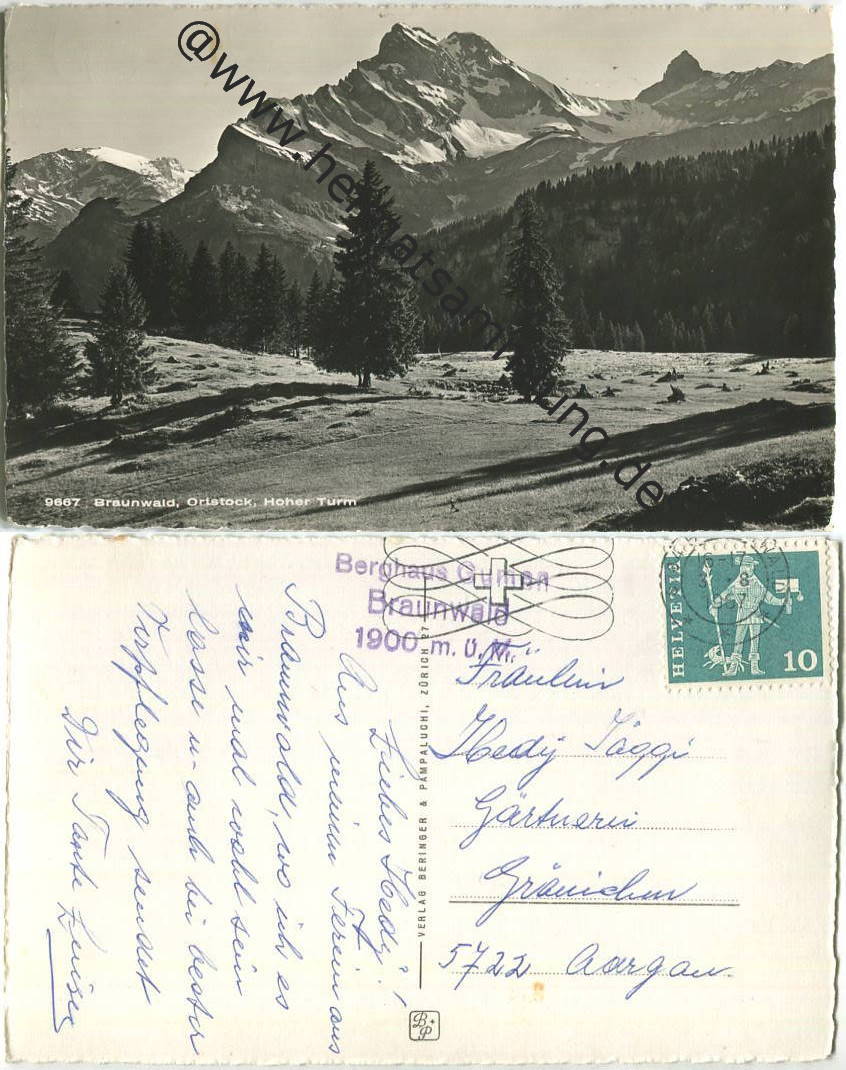 @www.heimatsammlung.de
9667 Braunwald, Ortstock, Hoher Turm
Berghaus Gumen
Braunwald
1900 m. ü. M.
HELVETIA
10
Fräulein
Hedy Jäggi
Gärtnerin
Gränichen
5722 Aargau.
VERLAG BERINGER & PAMPALUCHI, ZÜRICH
B+P
Liebes Hedy!
Aus meinen Ferien aus
Braunwald, wo ich es
mir mal wohl sein
lasse u. auch bei bester
Verpflegung sendet
Dir Tante